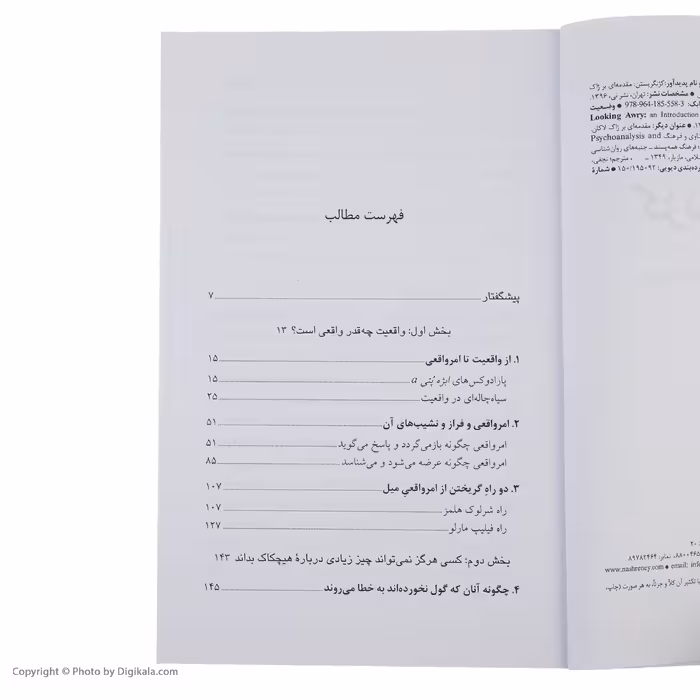 فهرست مطالب
پیشگفتار ۷
بخش اول: واقعیت چه‌قدر واقعی است؟ ۱۳
۱. از واقعیت تا امرواقعی ۱۵
پارادوکس‌های ابژه پُتی a ۱۵
سیاه‌چاله‌ای در واقعیت ۲۵
۲. امرواقعی و فراز و نشیب‌های آن ۵۱
امرواقعی چگونه بازمی‌گردد و پاسخ می‌گوید ۵۱
امرواقعی چگونه عرضه می‌شود و می‌شناسد ۸۵
۳. دو راهِ گریختن از امرواقعیِ میل ۱۰۷
راه شرلوک هلمز ۱۰۷
راه فیلیپ مارلو ۱۲۷
بخش دوم: کسی هرگز نمی‌تواند چیز زیادی دربارهٔ هیچکاک بداند ۱۴۳
۴. چگونه آنان که گول نخورده‌اند به خطا می‌روند ۱۴۵
نام پدیدآور: کژنگریستن: مقدمه‌ای بر ژاک
● مشخصات نشر: تهران، نشر نی، ۱۳۹۶.
978-964-185-558-3 ● وضعیت
Looking Awry: an Introduction
● عنوان دیگر: مقدمه‌ای بر ژاک لاکان.
Psychoanalysis and و فرهنگ
فرهنگ همه‌پسند ــ جنبه‌های روان‌شناسی
مازیار، ۱۳۴۹ ــ ، مترجم؛ نجفی،
رده‌بندی دیویی: ۱۵۰/۱۹۵۰۹۲ ● شمارهٔ
۲۰
نمابر: ۸۹۷۸۲۴۶۴
www.nashreney.com ● email:
تکثیر آن کلاً و جزئاً، به هر صورت (چاپ،
Copyright © Photo by Digikala.com